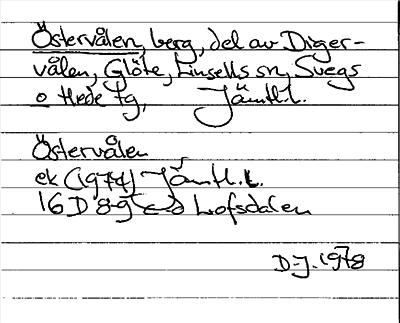 Östervålen, berg, del av Diger-
vålen, Glöte, Linsells sn, Svegs
o Hede tg, Jämtl.l.
Östervålen
ek (1974) Jämtl.l.
16 D 8-9 c-d Lofsdalen
D-J. 1978